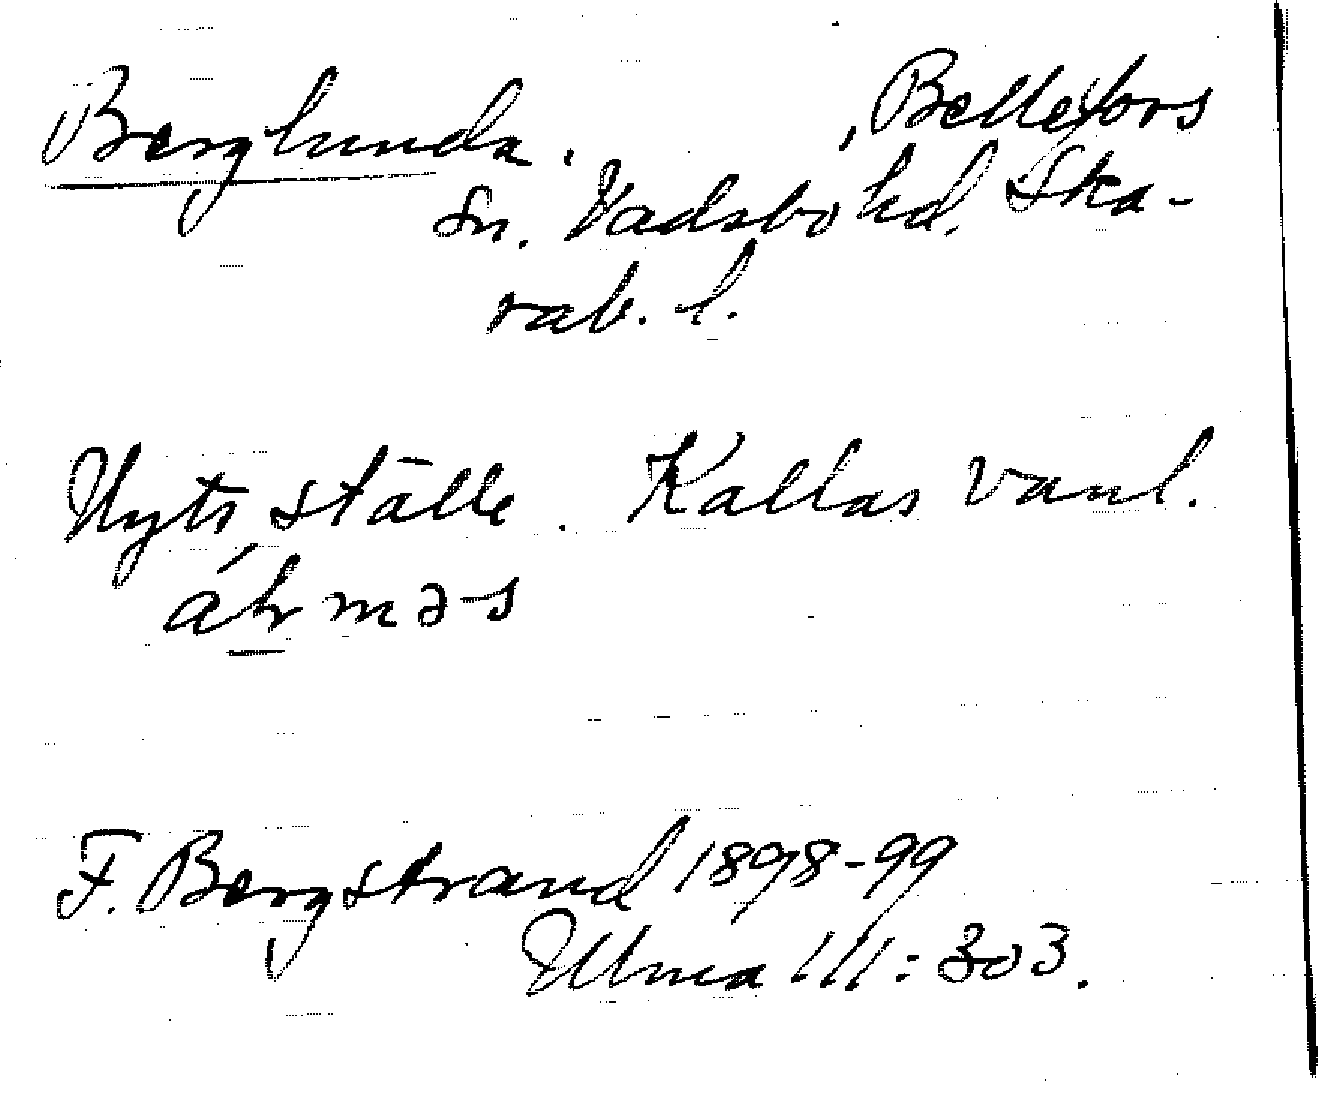 Berglunda. , Bellefors
sn. Vadsbo hd, Ska-
rab. l.
Utflytt. ställe. Kallas vanl.
F. Bergstrand 1898-99
Ulma 111:303.